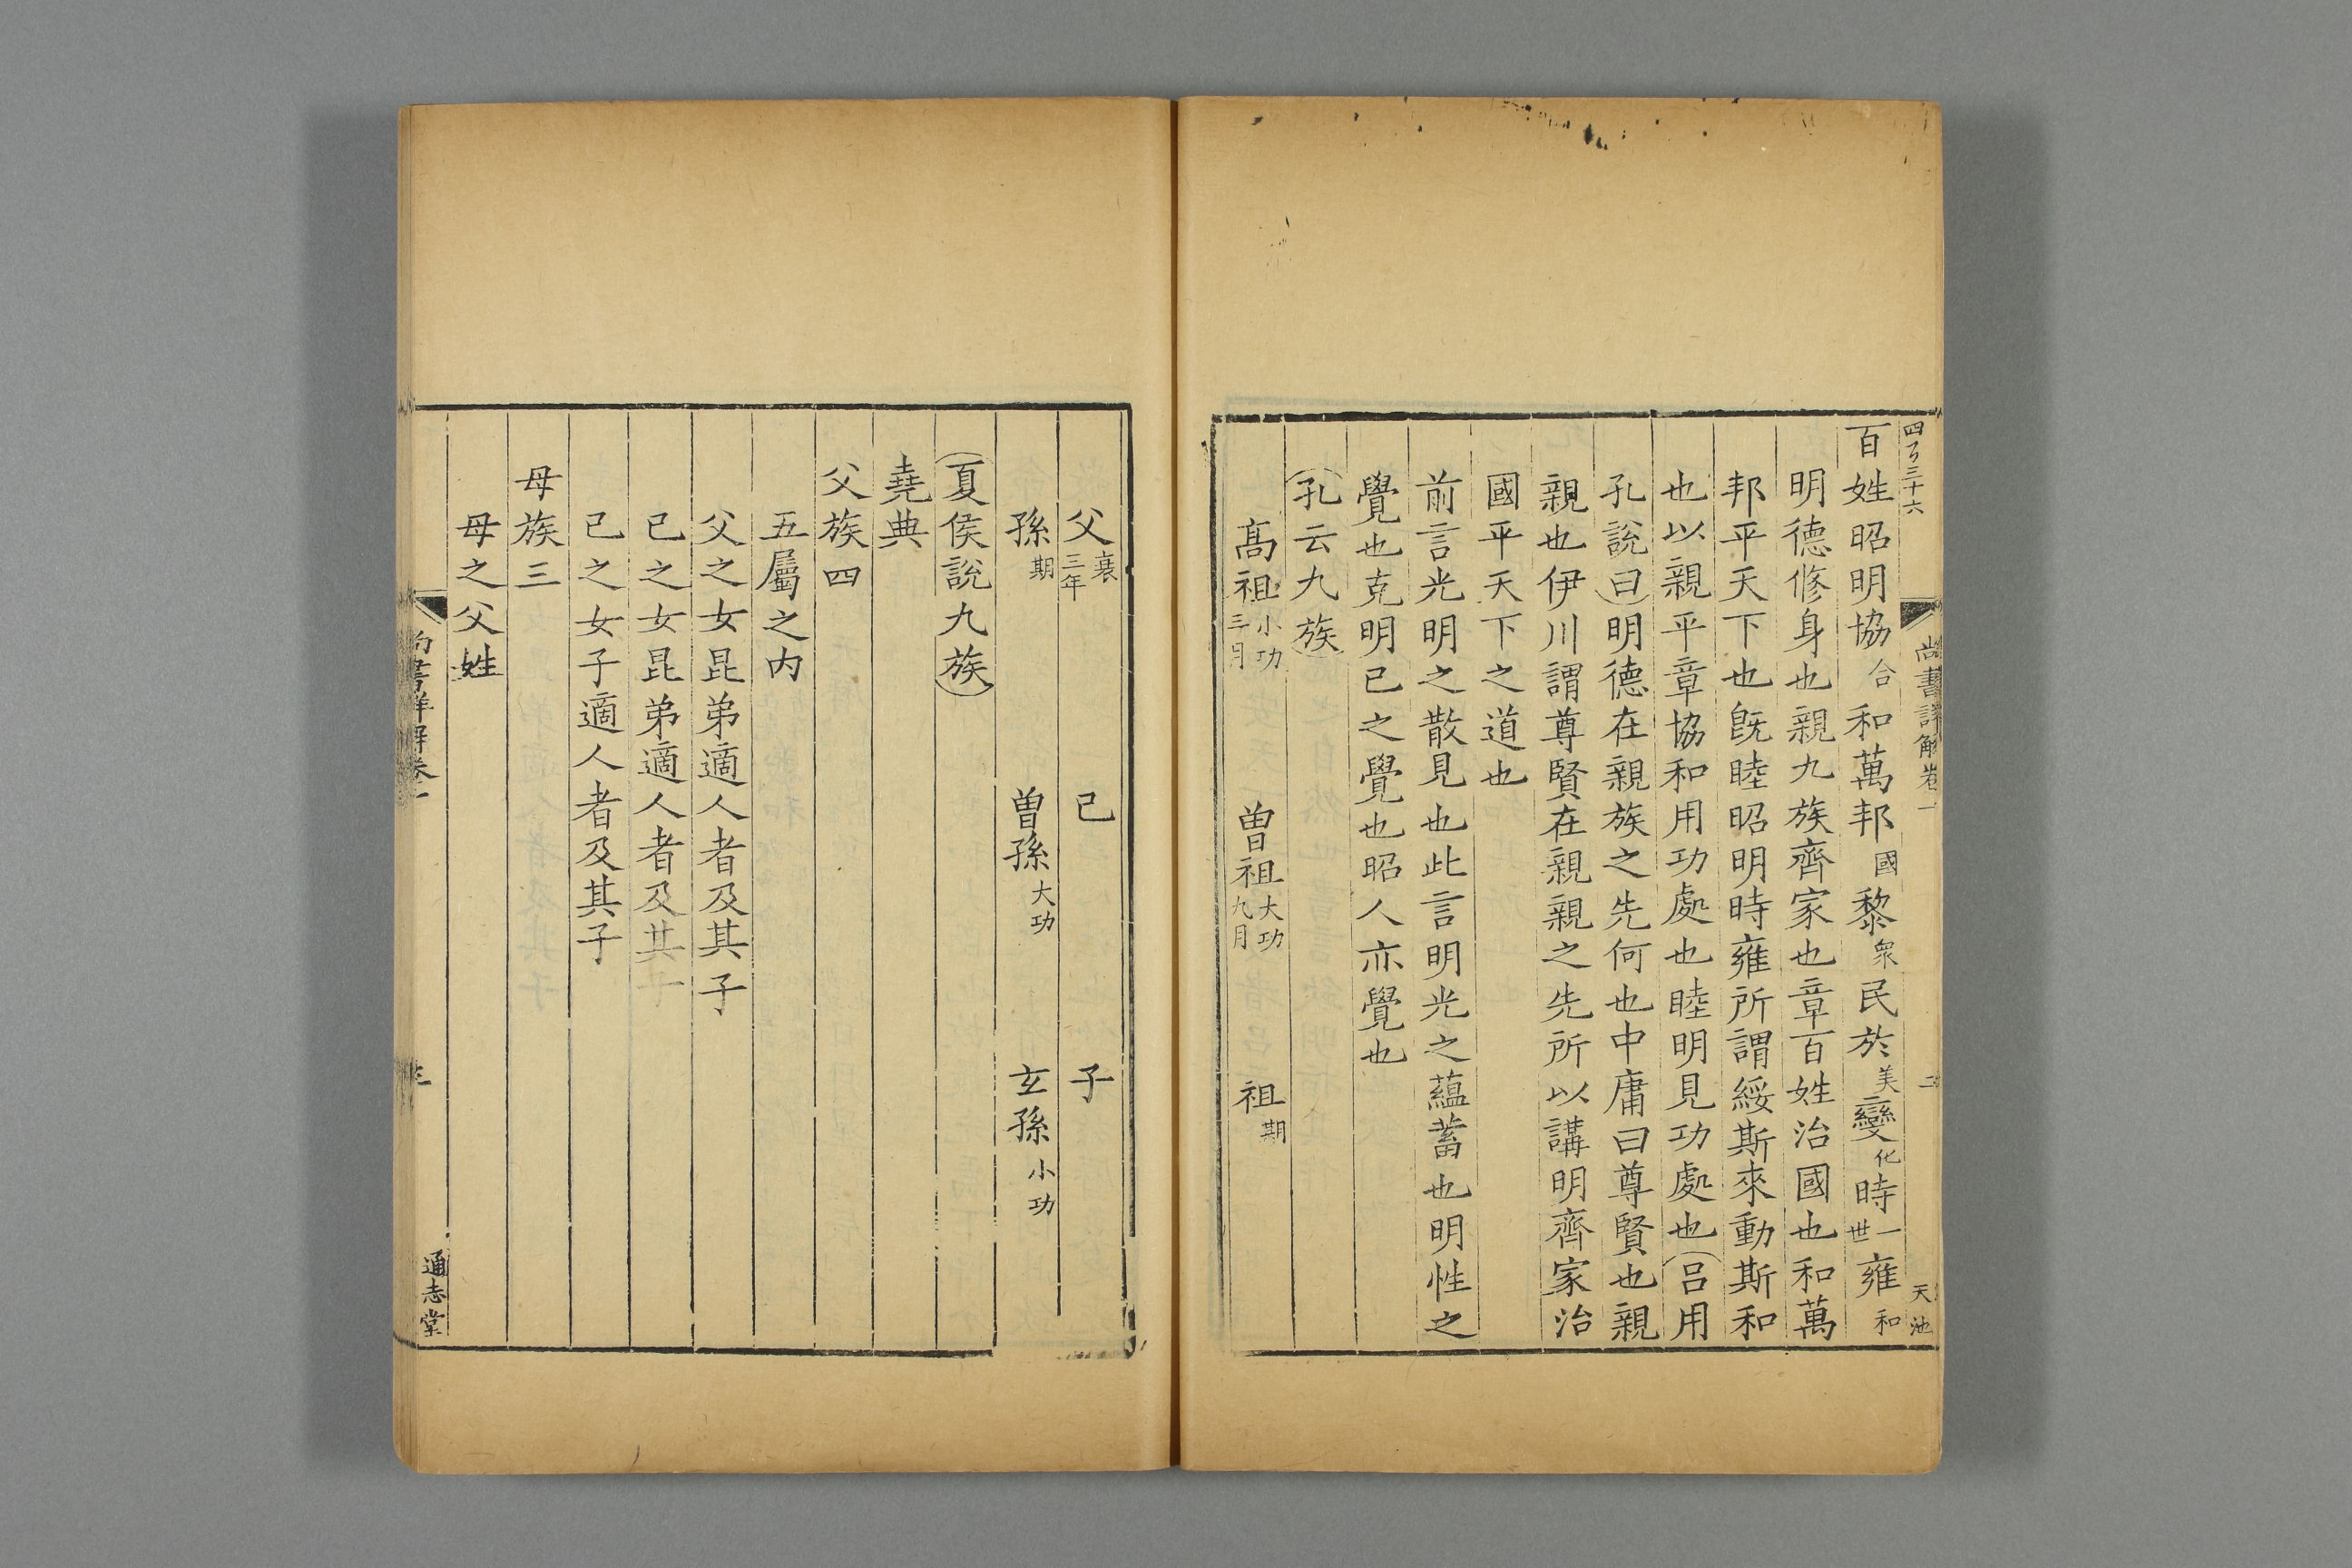 四百三十六
尚書詳解卷一
二
天池
百姓昭明協合和萬邦國黎衆民於美變化時一世雍和
明德修身也親九族齊家也章百姓治國也和萬
邦平天下也旣睦昭明時雍所謂綏斯來動斯和
也以親平章協和用功處也睦明見功處也呂用
孔說曰明德在親族之先何也中庸曰尊賢也親
親也伊川謂尊賢在親親之先所以講明齊家治
國平天下之道也
前言光明之散見也此言明光之蘊蓄也明性之
覺也克明已之覺也昭人亦覺也
孔云九族
高祖小功三月 曽祖大功九月 祖期
父衰三年 已 子
孫期 曽孫大功 玄孫小功
夏侯說九族
堯典
父族四
五屬之内
父之女昆弟適人者及其子
已之女昆弟適人者及其子
已之女子適人者及其子
母族三
母之父姓
尚書詳解卷一
三
通志堂